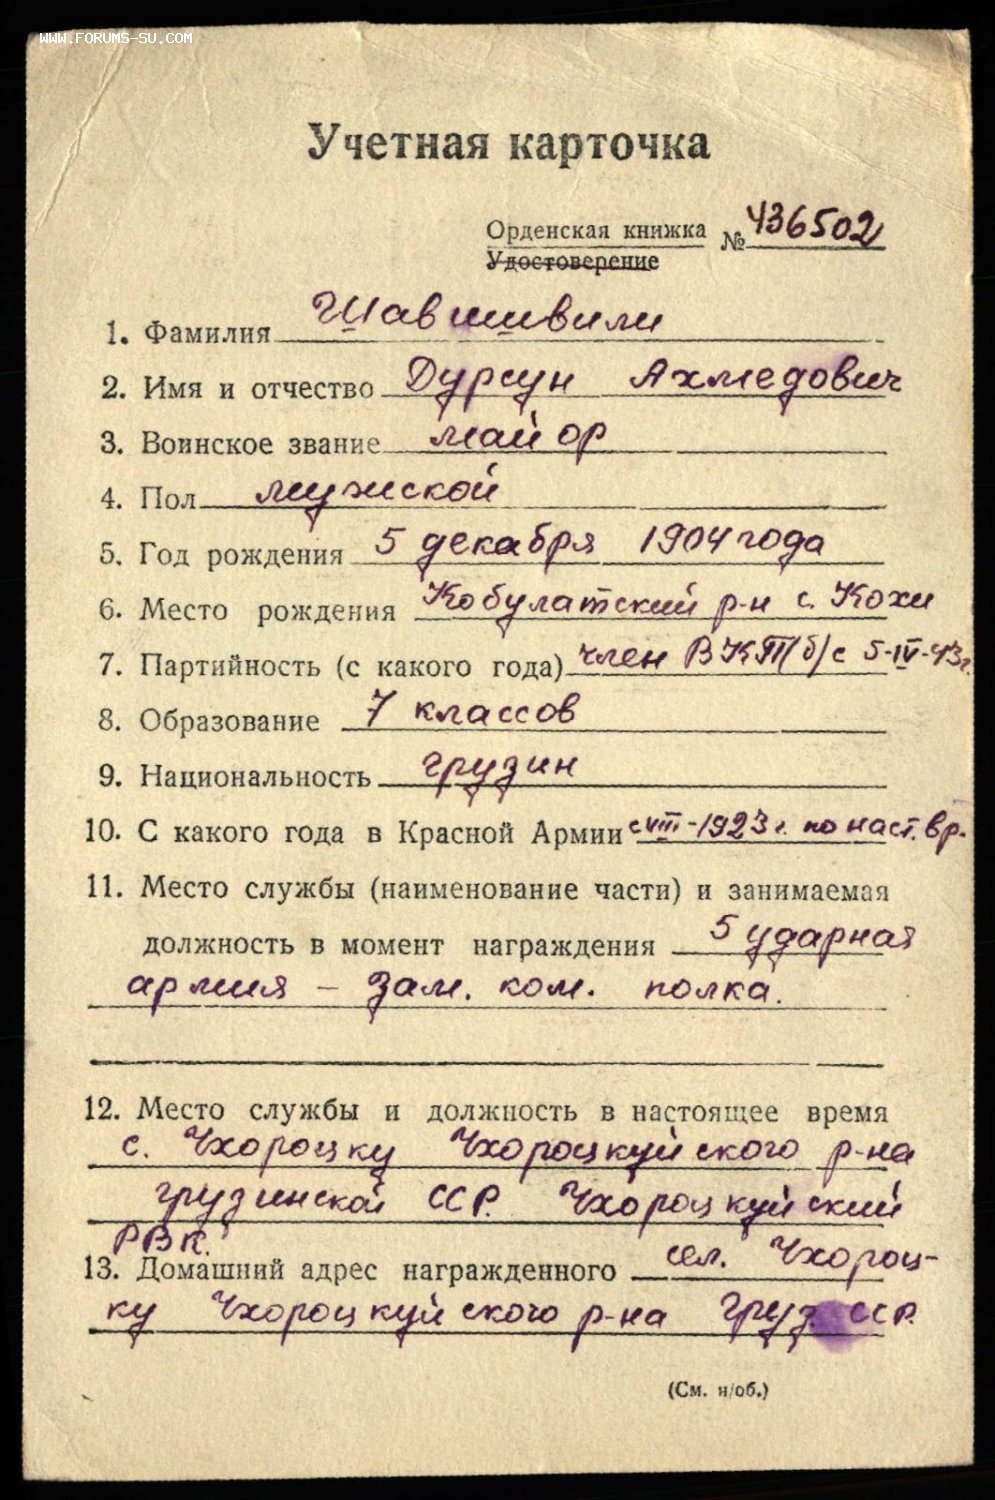 WWW.FORUMS-SU.COM
Учетная карточка
Орденская книжка № 436502
Удостоверение
1. Фамилия Шавишвили
2. Имя и отчество Дурсун Ахмедович
3. Воинское звание майор
4. Пол мужской
5. Год рождения 5 декабря 1904 года
6. Место рождения Кобулатский р-н с. Кохи
7. Партийность (с какого года) член ВКП(б) с 5-IV-43г.
8. Образование 7 классов
9. Национальность грузин
10. С какого года в Красной Армии с VIII-1923 г. по наст. вр.
11. Место службы (наименование части) и занимаемая
должность в момент награждения 5 ударная
армия – зам. ком. полка.
12. Место службы и должность в настоящее время
с. Чхороцку Чхороцкуйского р-на
грузинской ССР. Чхороцкуйский
РВК.
13. Домашний адрес награжденного сел. Чхороц-
ку Чхороцкуйского р-на Груз. ССР.
(См. н/об.)